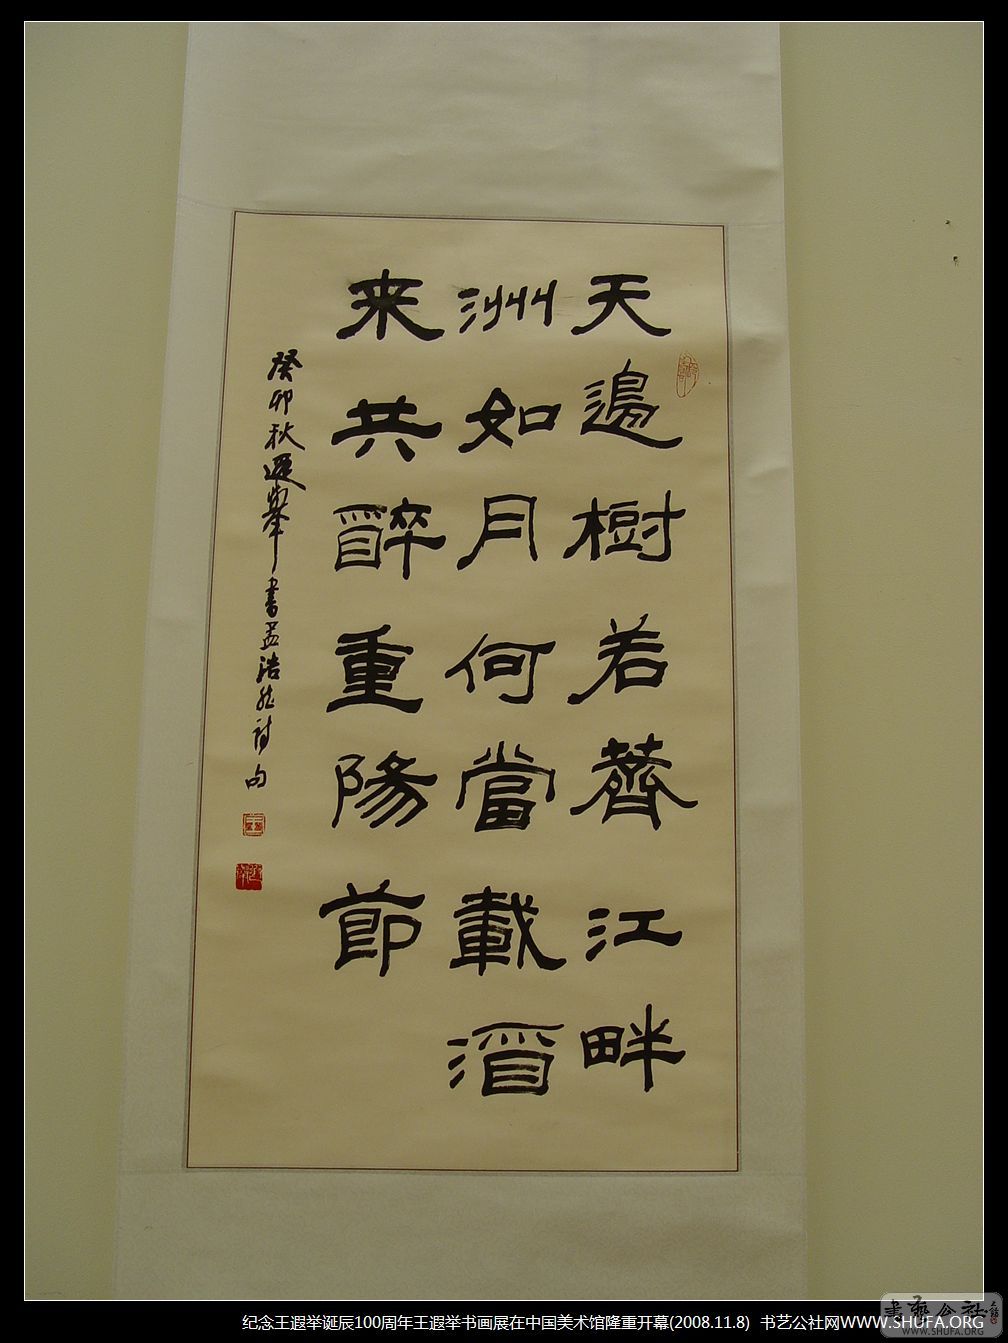 天邊樹若薺江畔
洲如月何當載酒
来共醉重陽節
癸卯秋遐舉書孟浩然詩句
纪念王遐举诞辰100周年王遐举书画展在中国美术馆隆重开幕(2008.11.8) 书艺公社网WWW.SHUFA.ORG
書藝公社
WWW.SHUFA.ORG